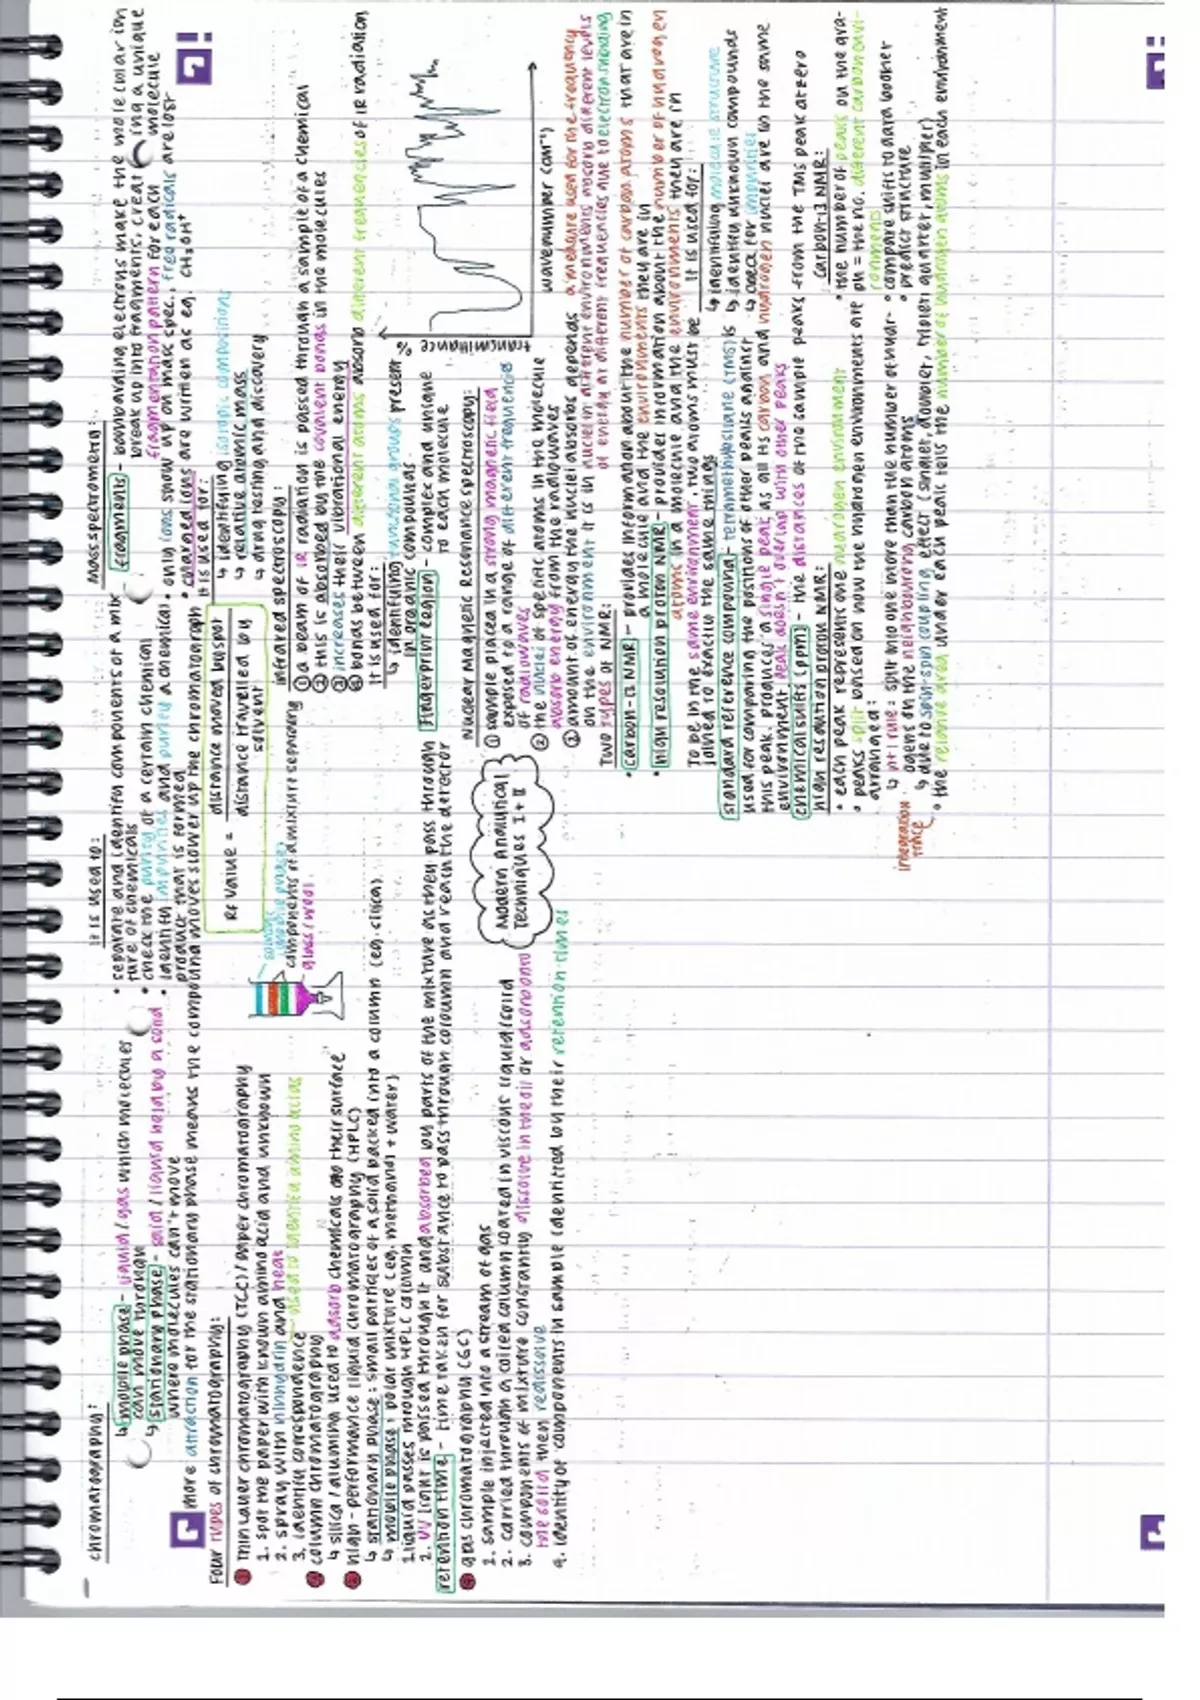 chromatography:
↳ mobile phase - liquid / gas which molecules
can move through
↳ stationary phase - solid / liquid held by a solid
where molecules can't move
more attraction for the stationary phase means the compound moves slower up the chromatograph
it is used to:
• separate and identify components of a mix-
ture of chemicals
• check the purity of a certain chemical
• identify impurities and purify a chemical
product that is formed
Rf value = distance moved by spot
distance travelled by
solvent
Four types of chromatography:
① thin layer chromatography (TLC) / paper chromatography
1. spot the paper with known amino acid and unknown
2. spray with ninhydrin and heat
3. identify correspondence - used to identify amino acids
② column chromatography
↳ silica / alumina used to adsorb chemicals on their surface
③ high-performance liquid chromatography (HPLC)
↳ stationary phase: small particles of a solid packed into a column (eg. silica)
↳ mobile phase: polar mixture (eg. methanol + water)
1. liquid passes through HPLC column
2. UV light is passed through it and absorbed by parts of the mixture as they pass through
retention time - time taken for substance to pass through column and reach the detector
④ gas chromatography (GC)
1. sample injected into a stream of gas
2. carried through a coiled column coated in viscous liquid/solid
3. components of mixture constantly dissolve in the oil or adsorb onto
the solid then redissolve
4. identity of components in sample identified by their retention times
components of a mixture separating
glass wool
Modern Analytical
Techniques I + II
Mass spectrometry:
fragments - bombarding electrons make the molecular ion
break up into fragments, creating a unique
fragmentation pattern for each molecule
• only ions show up on mass spec., free radicals are lost
• charged ions are written as eg. CH₃OH⁺
it is used for:
↳ identifying isotopic compositions
↳ relative atomic mass
↳ drug testing and discovery
infrared spectroscopy:
① a beam of IR radiation is passed through a sample of a chemical
② this is absorbed by the covalent bonds in the molecules
③ increases their vibrational energy
④ bonds between different atoms absorb different frequencies of IR radiation
It is used for:
↳ identifying functional groups present
in organic compounds
fingerprint region - complex and unique
to each molecule
transmittance %
wavenumber (cm⁻¹)
Nuclear Magnetic Resonance spectroscopy:
① sample placed in a strong magnetic field
exposed to a range of different frequencies
of radiowaves
② the nuclei of specific atoms in the molecule
absorb energy from the radiowaves
③ amount of energy the nuclei absorbs depends
on the environment it is in
a measure used for the frequency
nuclei in different environments absorb different levels
of energy at different frequencies due to electron shielding
Two types of NMR:
• carbon-13 NMR - provides information about the number of carbon atoms that are in
a molecule and the environments they are in
• high resolution proton NMR - provides information about the number of hydrogen
atoms in a molecule and the environments they are in
To be in the same environment, two atoms must be
joined to exactly the same things
It is used for:
↳ identifying molecule structure
↳ identify unknown compounds
↳ check for impurities
standard reference compound - tetramethylsilane (TMS) is
used for comparing the positions of other peaks against
this peak. produces a single peak as all its carbon and hydrogen nuclei are in the same
environment peak doesn't overlap with other peaks
chemical shifts (ppm) - the distances of the sample peaks from the TMS peak at zero
high resolution proton NMR:
• each peak represents one hydrogen environment
• peaks split based on how the hydrogen environments are
arranged:
↳ n+1 rule: split into one more than the number of hydr-
ogens on the neighbouring carbon atoms
↳ due to spin-spin coupling effect (singlet, doublet, triplet, quartet, multiplet)
• the relative area under each peak tells the number of hydrogen atoms in each environment
integration
trace
Carbon-13 NMR:
• the number of peaks on the gra-
ph = the no. different carbon envi-
ronments
• compare shifts to data booklet
• predict structure